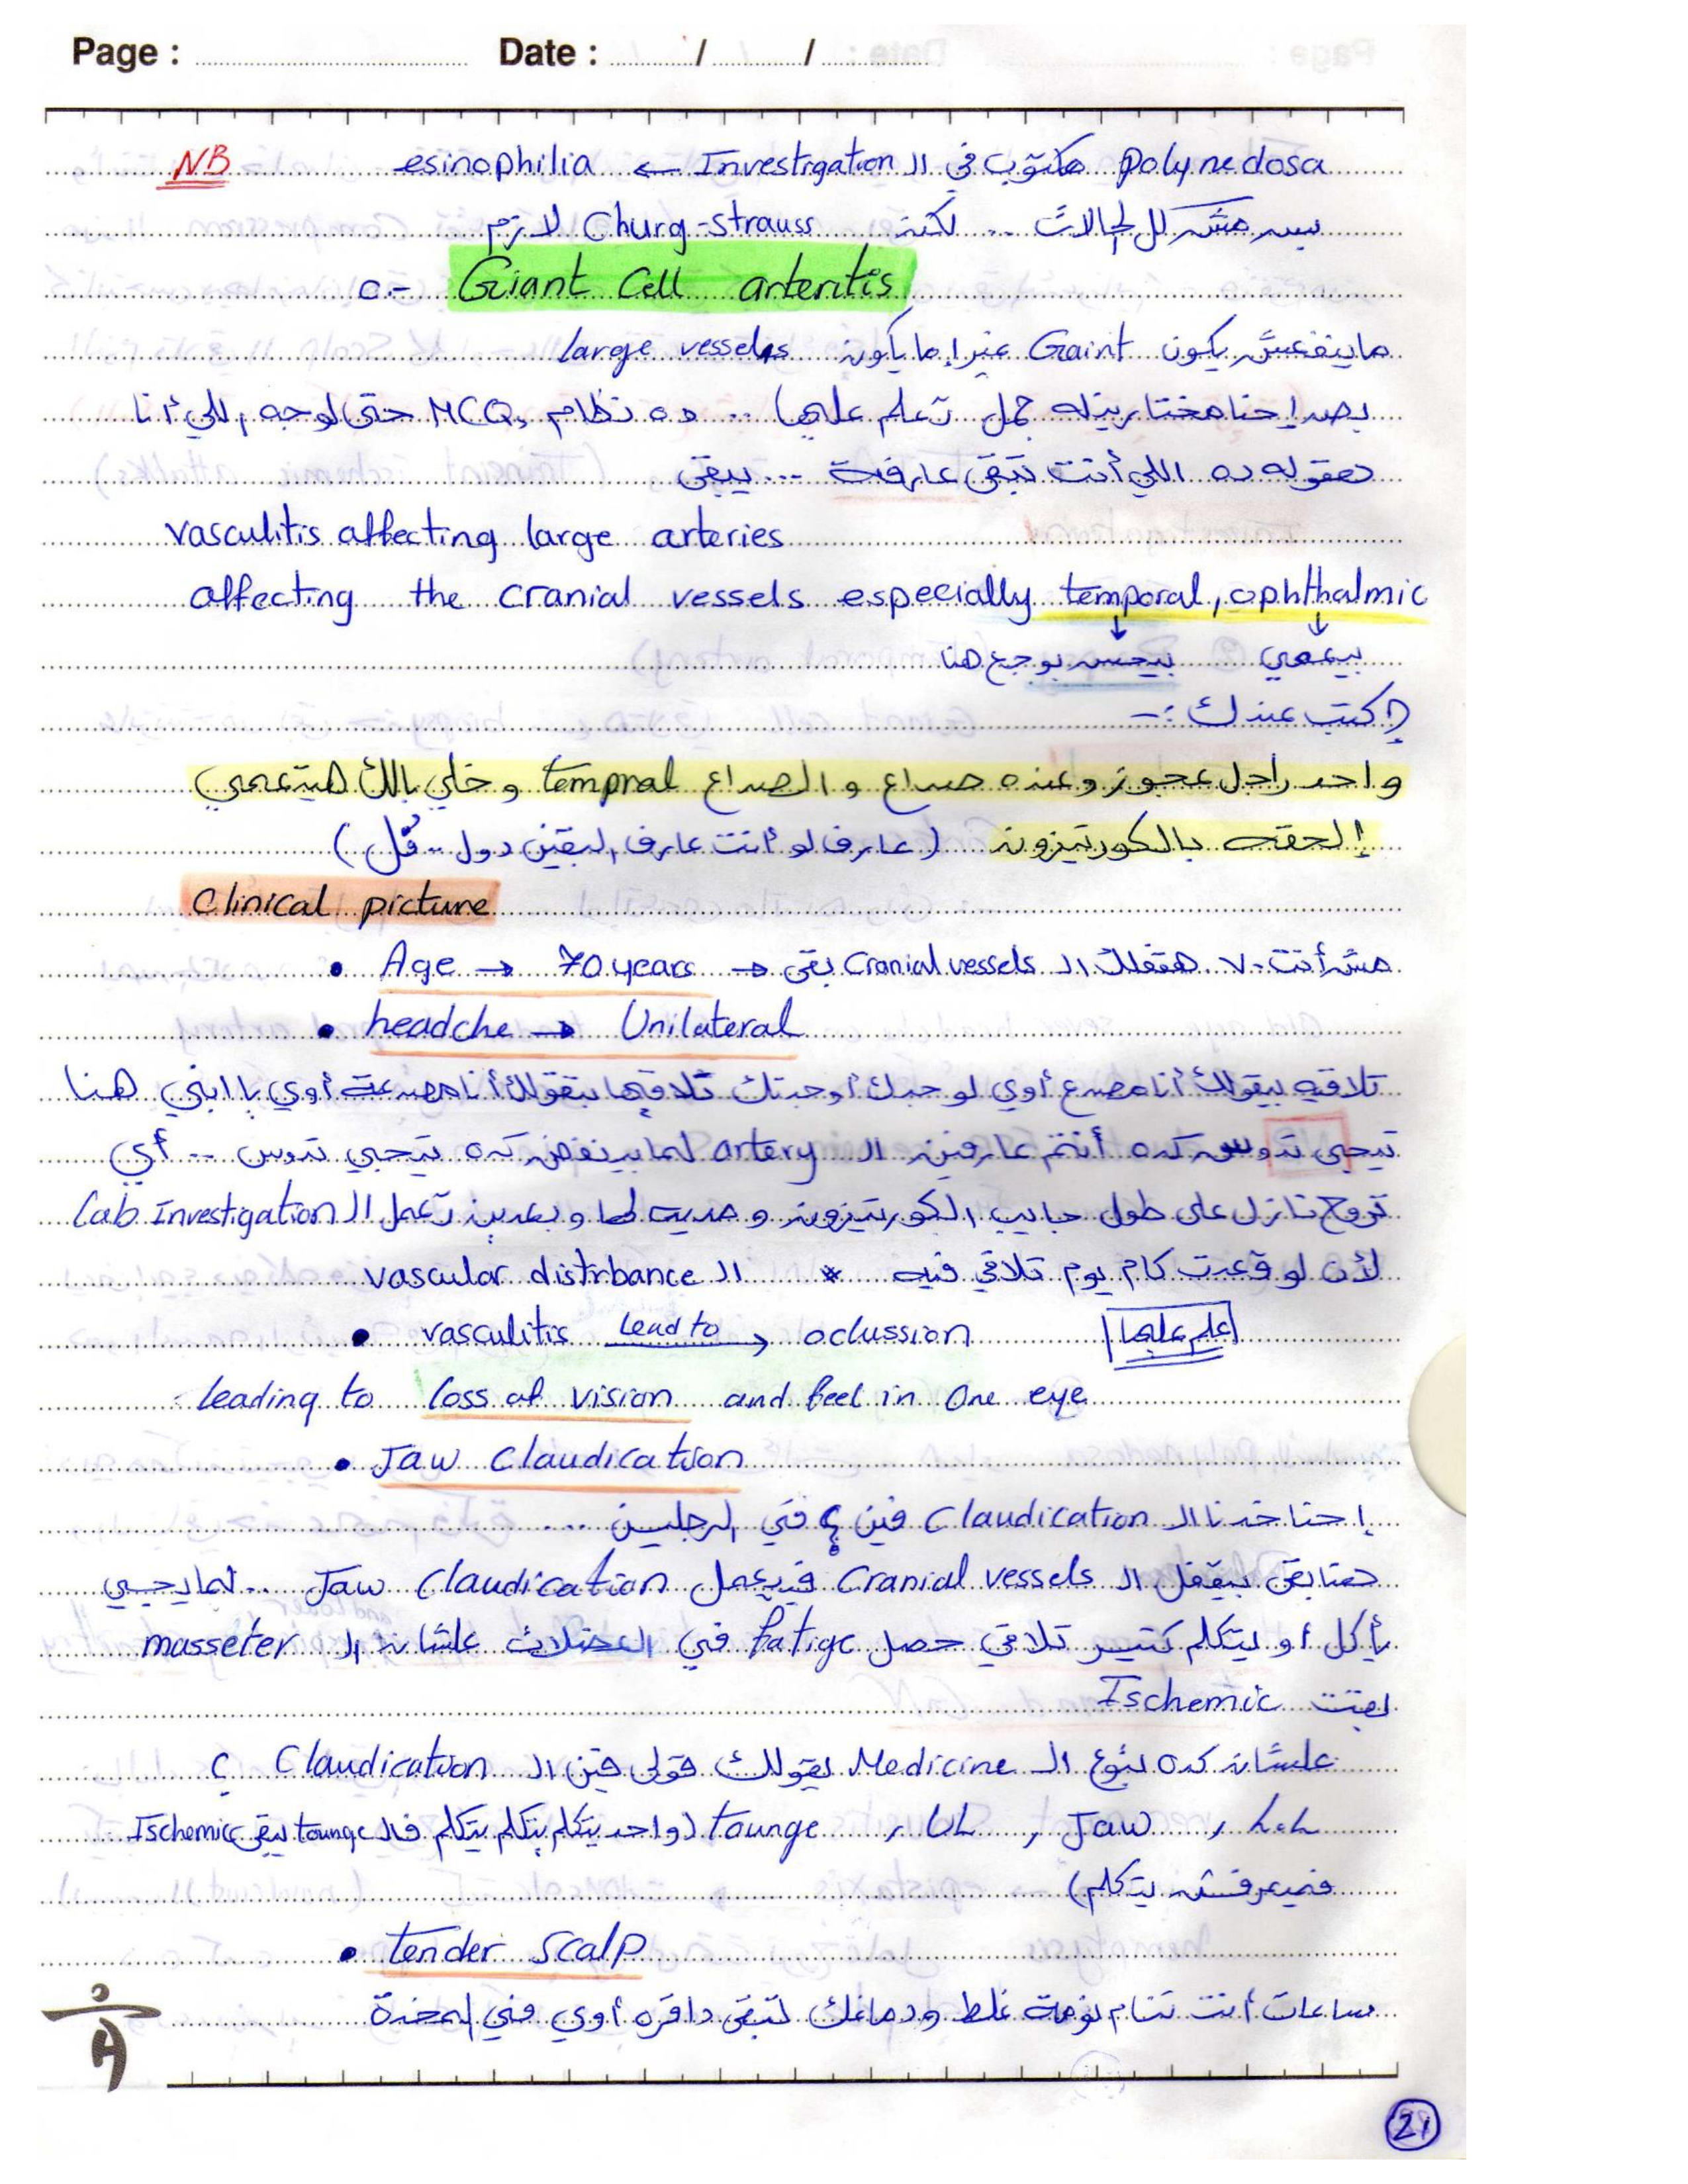 Page : Date : / /
NB polynedosa مكتوب في ال Investigation ← esinophilia
بس مش كل الحالات .. لكن Churg-strauss لازم
0- Giant Cell arteritis
ماينفعش يكون Gaint غير إما يكون large vessels
بص إحنا هنختار منه جمل تعلم عليها ... ده نظام MCQs حتى لو جه اللي أنا
هقوله ده اللي أنت تبقى عارفه ... يبقى
vasculitis affecting large arteries
affecting the cranial vessels especially temporal, ophthalmic
↓ بيعمي ↓ بيحس بوجع هنا
إكتب عندك :-
واحد راجل عجوز وعنده صداع والصداع tempral وخلي بالك هيتعمي
إلحقه بالكورتيزون (عارف لو أنت عارف البقين دول .. قُل)
Clinical picture
• Age → 70 years → مش أنت ٧٠ هتقفلك ال Cranial vessels بقى
• headche → Unilateral
تلاقيه بيقولك أنا مصدع أوي لو جدك أو جدتك تلاقيها بتقولك أنا مصدعة أوي يا ابني هنا
تيجي تدوس كده أنتم عارفين ال artery لما بينفض كده تيجي تدوس .. أي
تروح نازل على طول جايب الكورتيزون ومديه لها وبعدين تعمل ال Lab Investigation
لأن لو قعدت كام يوم تلاقي فيه * ال vascular distrbance
• vasculitis Lead to → oclussion علم عليها
leading to loss of vision and feel in One eye
• Jaw Claudication
إحنا خدنا ال Claudication فين ؟ في الرجلين ...
هنا بقى بيقفل ال Cranial vessels فيعمل Jaw Claudication ... لما ييجي
يأكل أو يتكلم كتير تلاقي حصل fatige في العضلات علشان ال masseter
بقت Ischemic
علشان كده بتوع ال Medicine يقولك قولي فين ال Claudication ؟
L.L , Jaw , UL , Tounge (واحد يتكلم يتكلم يتكلم فال tounge يبقى Ischemic
فميعرفش يتكلم)
• tender scalp
ساعات أنت تنام نومة غلط ودماغك تبقى داقره أوي في المخدة
21